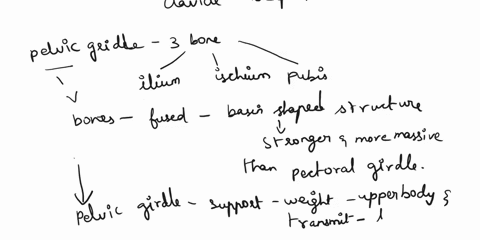 pelvic girdle - 3 bone
ilium ischium pubis
bones - fused - basin shaped structure
stronger & more massive
than pectoral girdle.
Pelvic girdle - support - weight - upper body &
transmit -